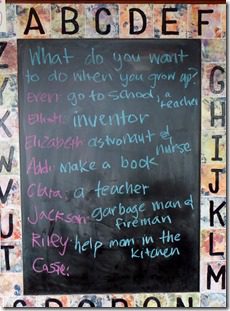 A B C D E F
What do you want
to do when you grow up?
Evan: go to school, a teacher
Elliott: inventor
Elizabeth: astronaut & nurse
Addi: make a book
Clara: a teacher
Jackson: garbage man & fireman
Riley: help mom in the kitchen
Cassie:
G
H
I
J
K
L
M
N O P Q R
T
U
V
W
X
Y
Z